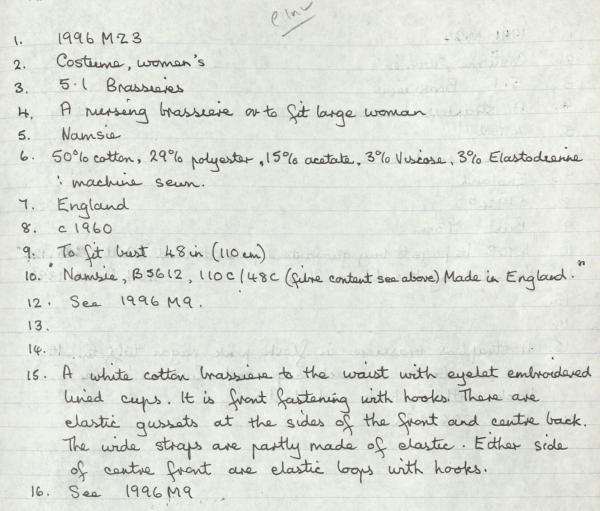 1. 1996 M23
2. Costume, women's
3. 5.1 Brassieres
4. A nursing brassiere or to fit large woman
5. Namsie
6. 50% cotton, 29% polyester, 15% acetate, 3% Viscose, 3% Elastodiene
: machine sewn.
7. England
8. c 1960
9. To fit bust 48 in (110 cm)
10. "Namsie, B5612, 110C/48C (fibre content see above) Made in England."
12. See 1996 M9.
13.
14.
15. A white cotton brassiere to the waist with eyelet embroidered
lined cups. It is front fastening with hooks. There are
elastic gussets at the sides of the front and centre back.
The wide straps are partly made of elastic. Either side
of centre front are elastic loops with hooks.
16. See 1996 M9